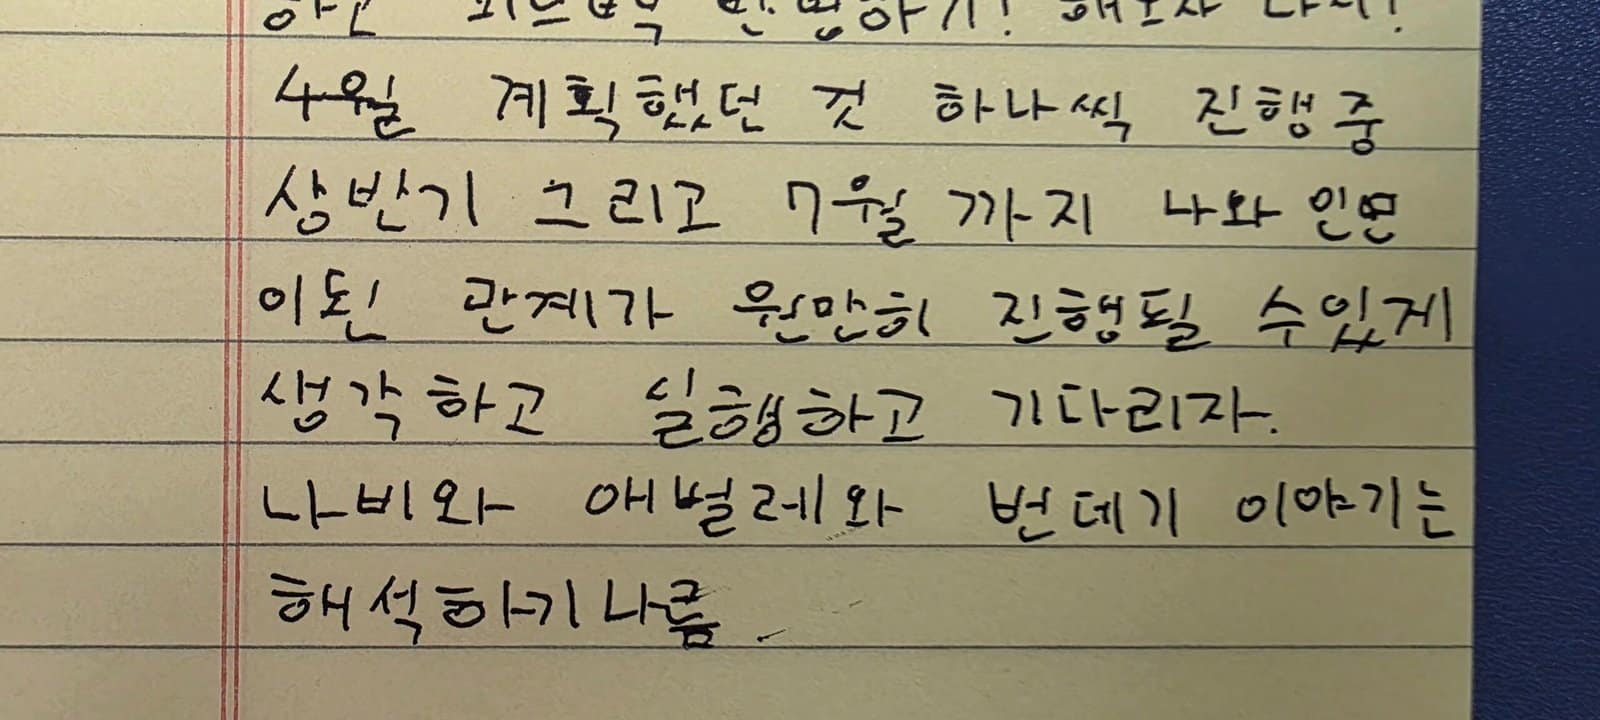 4월 계획했던 것 하나씩 진행중
상반기 그리고 7월 까지 나와 인연
이된 관계가 원만히 진행될 수있게
생각하고 실행하고 기다리자.
나비와 애벌레와 번데기 이야기는
해석하기나름.